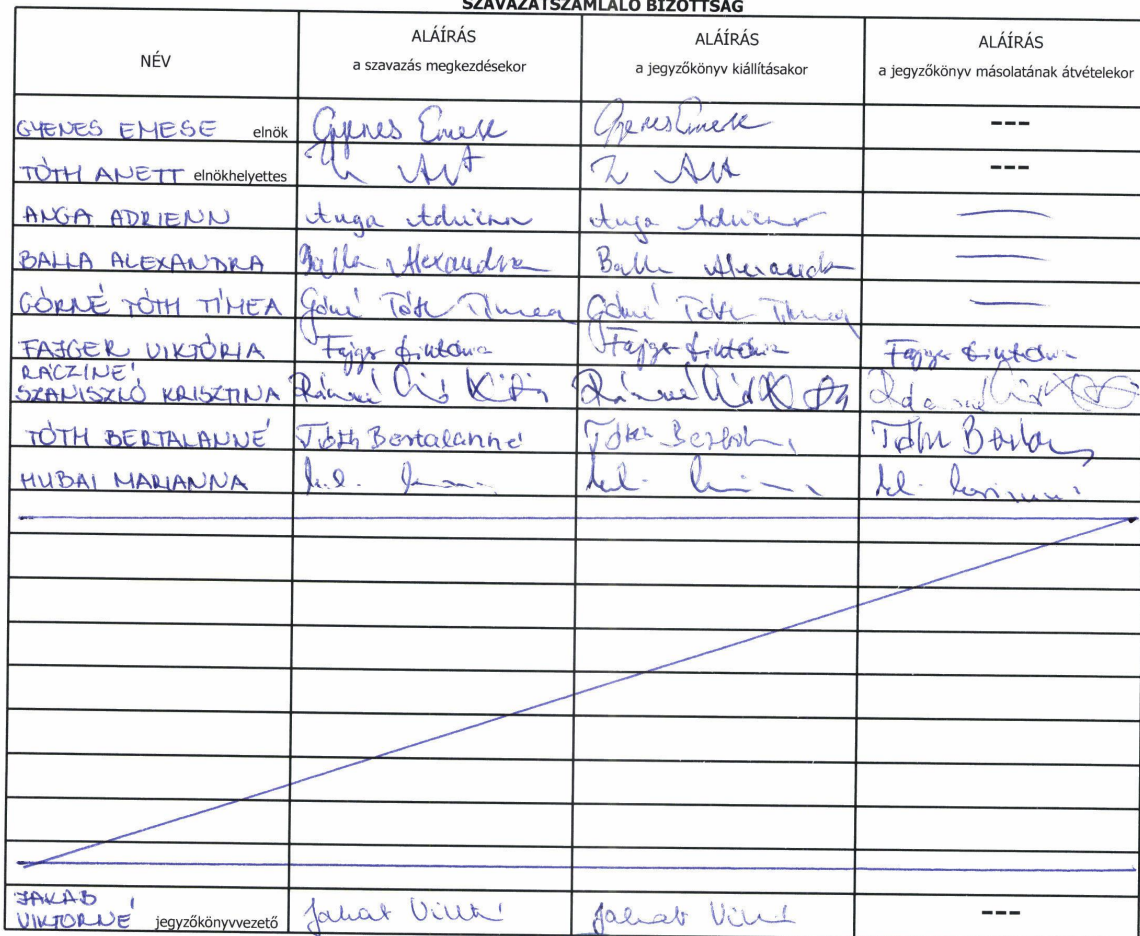 SZAVAZATSZÁMLÁLÓ BIZOTTSÁG
NÉV
ALÁÍRÁS
a szavazás megkezdésekor
ALÁÍRÁS
a jegyzőkönyv kiállításakor
ALÁÍRÁS
a jegyzőkönyv másolatának átvételekor
GYENES EMESE elnök Gyenes Emese Gyenes Emese ---
TÓTH ANETT elnökhelyettes ---
ANGA ADRIENN Anga Adrienn Anga Adrienn
BALLA ALEXANDRA Balla Alexandra Balla Alexandra
GÓRNÉ TÓTH TÍMEA Górné Tóth Tímea Górné Tóth Tímea
FAJGER VIKTÓRIA Fajger Viktória Fajger Viktória Fajger Viktória
RÁCZINÉ
SZANISZLÓ KRISZTINA
TÓTH BERTALANNÉ Tóth Bertalanné Tóth Tóth
HUBAI MARIANNA
JAKAB
VIKTORNÉ jegyzőkönyvvezető Jakab Jakab ---